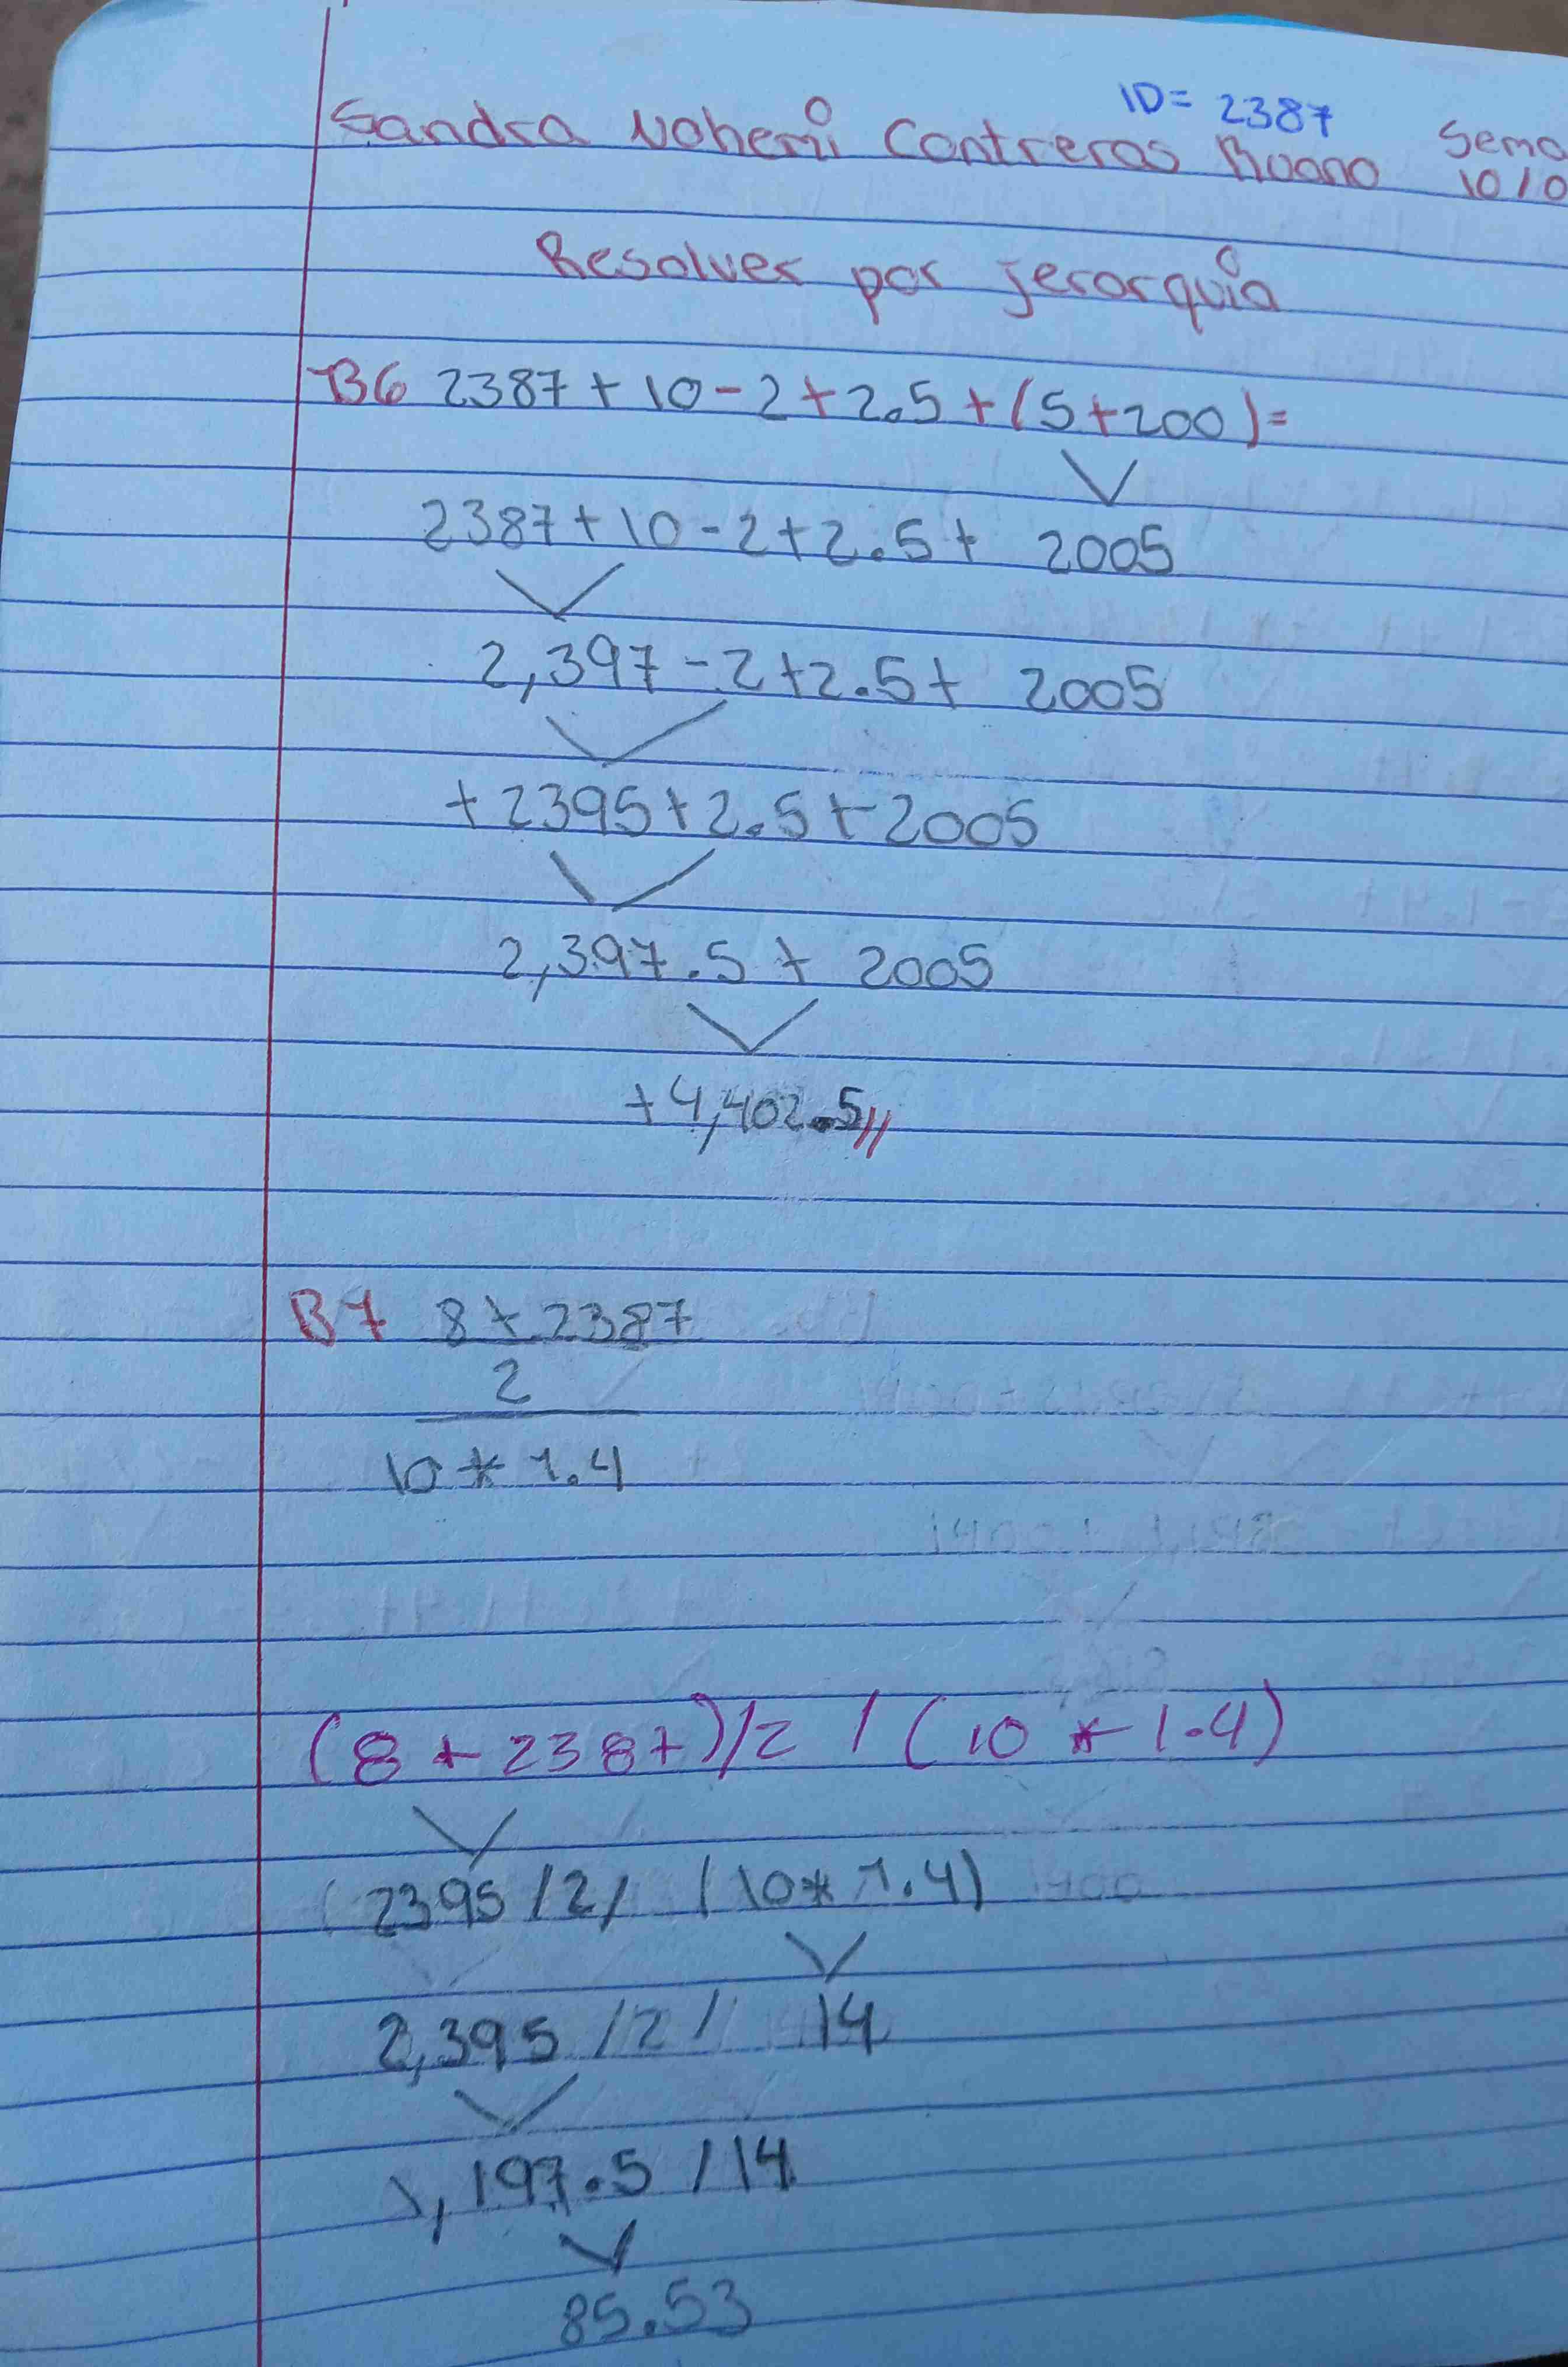 ID= 2387
Sandra Nohemí Contreras Ruano Sema
10/0
Resolver por jerarquía
B6 2387+10-2+2.5+(5+200)=
2387+10-2+2.5+ 2005
2,397-2+2.5+ 2005
+2395+2.5+2005
2,397.5+ 2005
+4,402.5//
B7 8+2387
2
10*1.4
(8+2387)/2 / (10*1.4)
(2395/2/ (10*1.4)
2,395/2/ 14
1,197.5/14
85.53